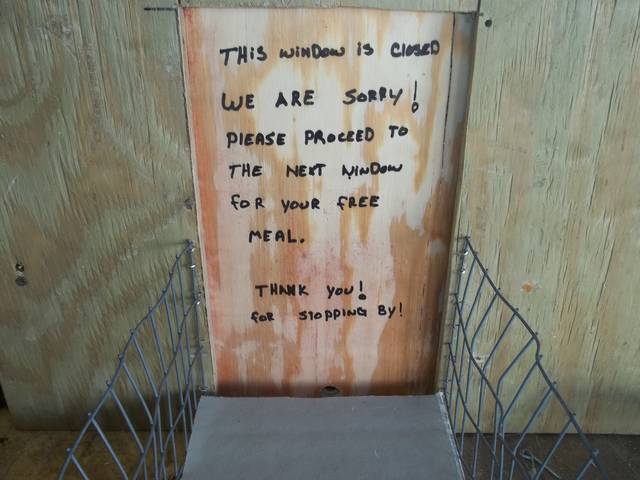 THIS WINDOW IS CLOSED
WE ARE SORRY!
PLEASE PROCEED TO
THE NEXT WINDOW
FOR YOUR FREE
MEAL.
THANK YOU!
FOR STOPPING BY!